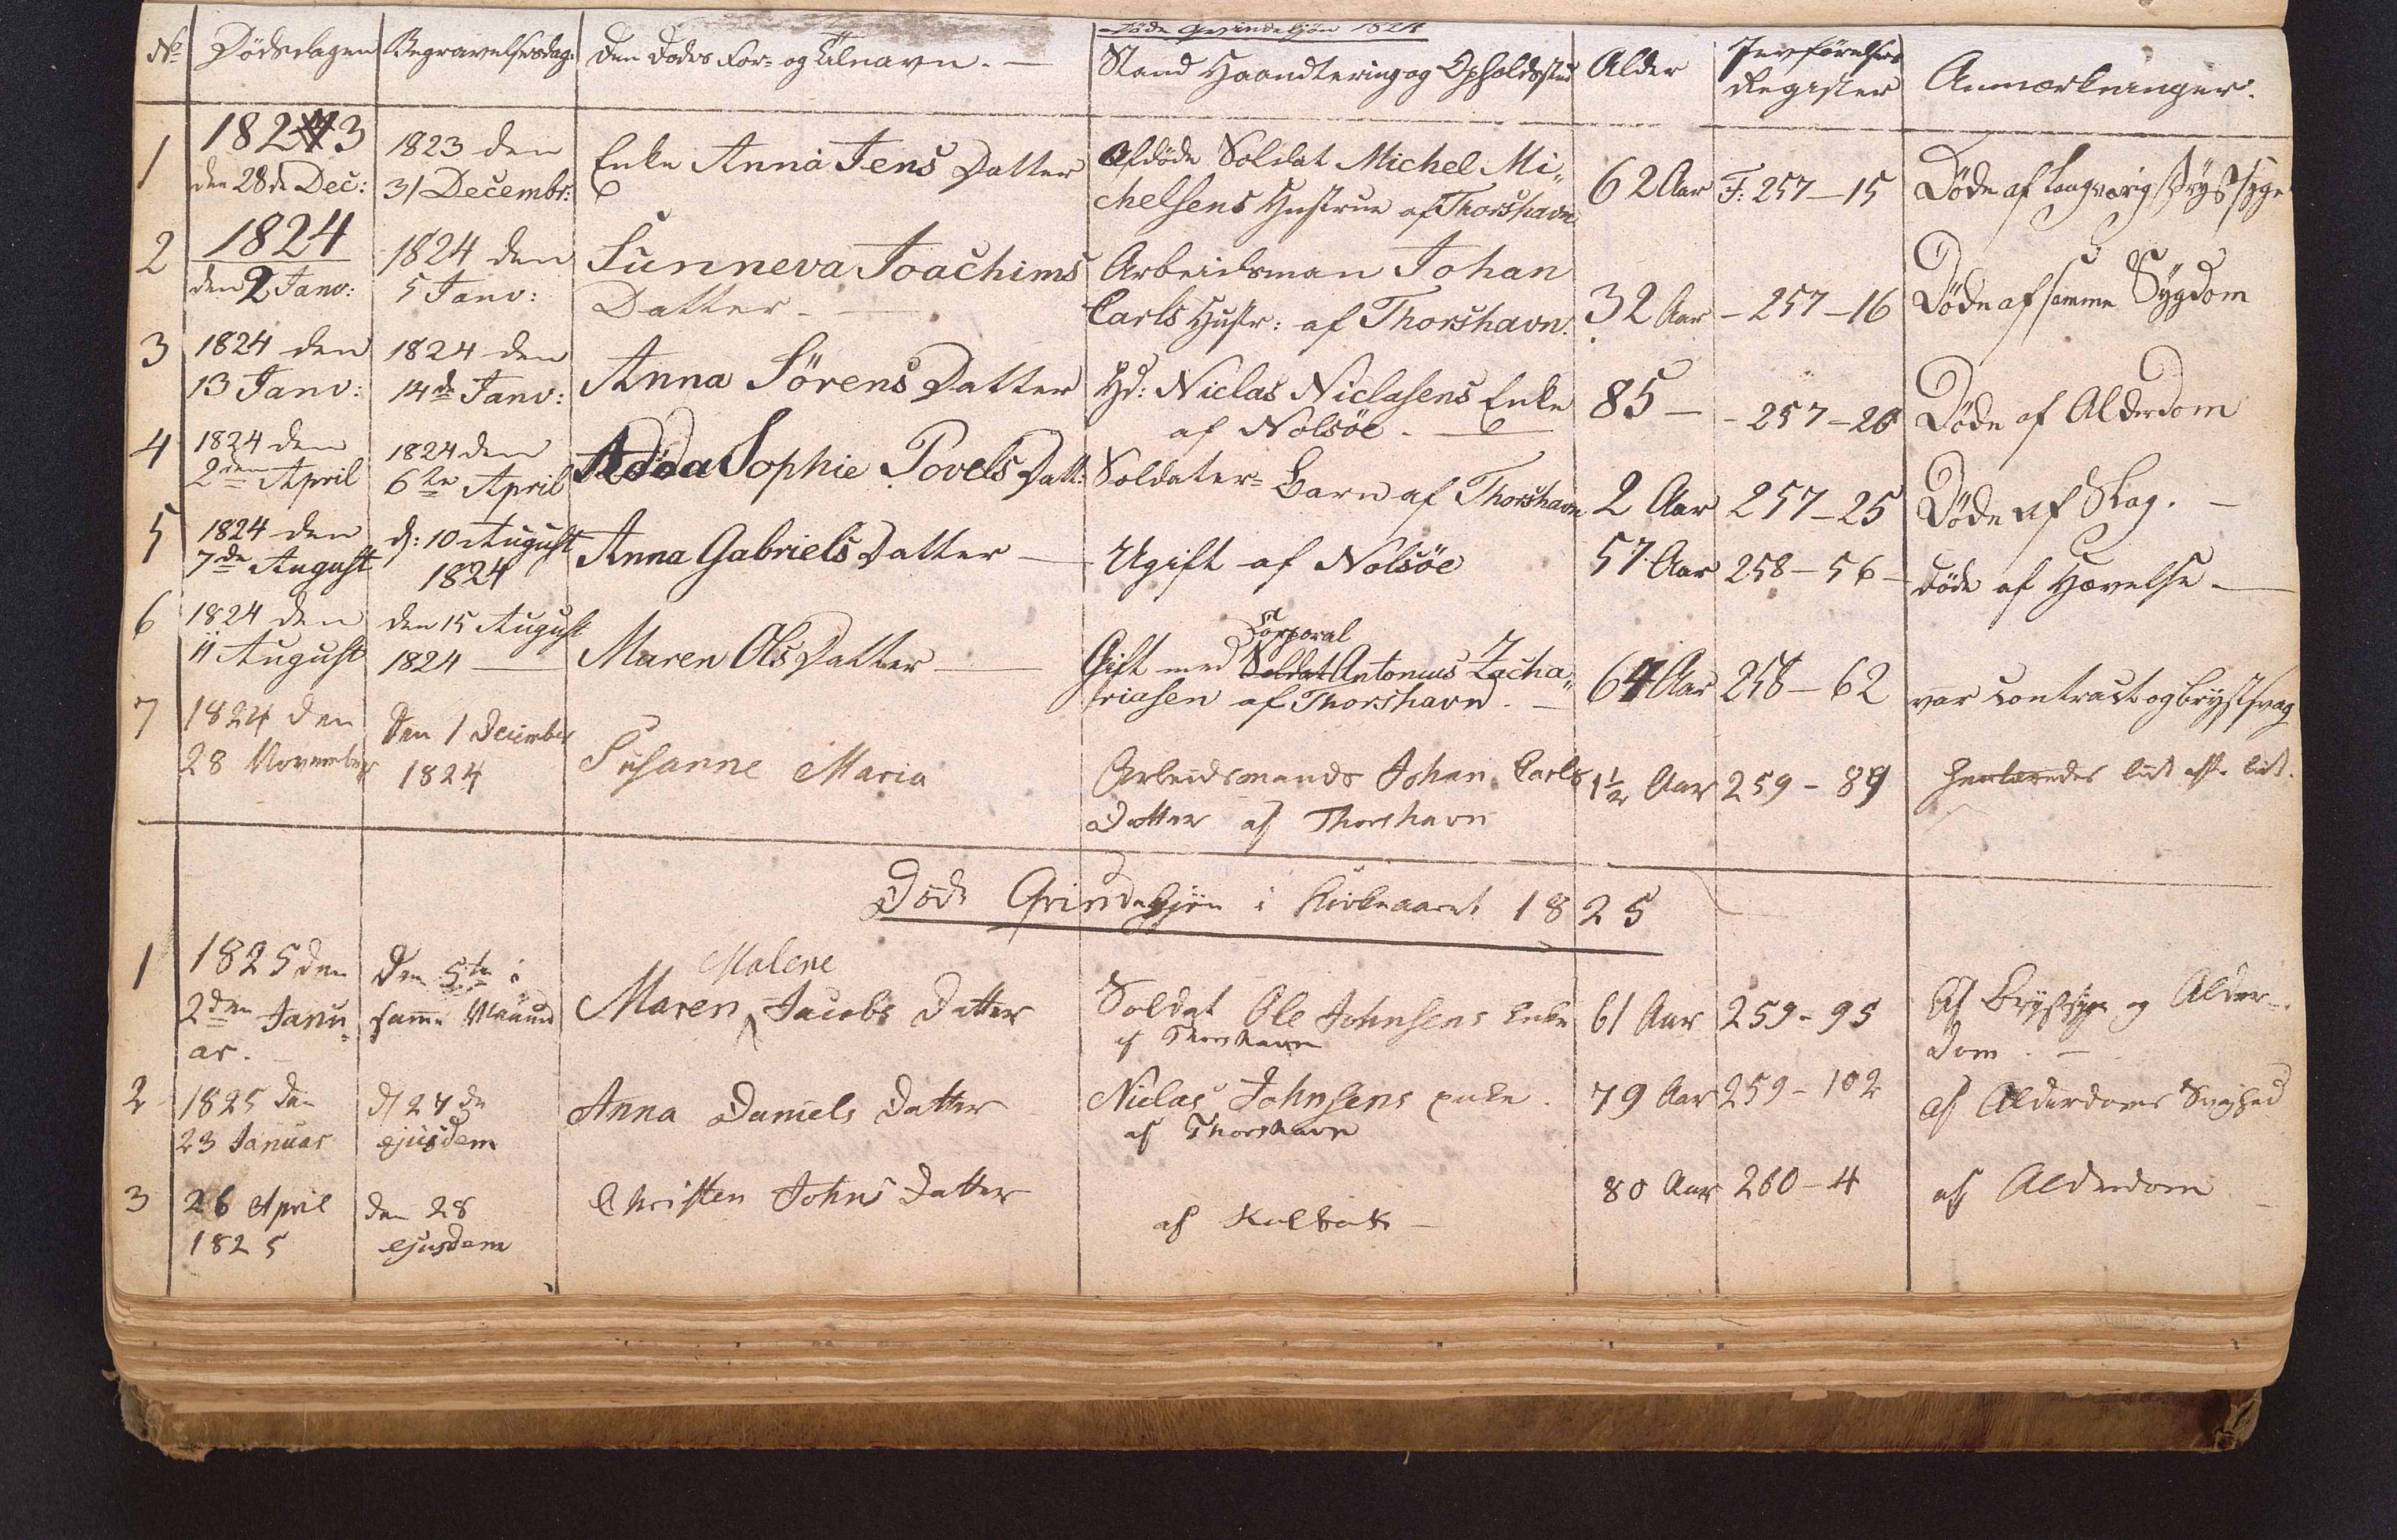 Døde Qvindekjön 1824
No Dödsdagen Begravelsesdag. Den Dödes For- og Tilnavn. — Stand Haandtering og Opholdssted Alder Jevnførelses Register Anmærkninger.
1 1823 den 28de Dec: 1823 den 31 Decembr: Enke Anna Jens Datter Afdöde Soldat Michel Mi„
chelsens Hustrue af Thorshavn 62 Aar F: 257-15 Döde af langvarig Brystsyge
2 1824 den 2 Janv: 1824 den 5 Janv: Sunneva Joachims
Datter. — Arbeidsman Johan
Carls Hustr: af Thorshavn. 32 Aar - 257-16 Döde af samme Sÿgdom
3 1824 den 13 Janv: 1824 den 14de Janv: Anna Sörens Datter Hd: Niclas Niclasens Enke
af Nolsöe. — 85 — - 257-20 Döde af Alderdom
4 1824 den 2den April 1824 den 6te April Adda Sophie Povels Datt: Soldater-Barn af Thorshavn 2 Aar 257-25 Döde af Slag. —
5 1824 den 7de August d: 10 August 1824 Anna Gabriels Datter — Ugift af Nolsöe 57 Aar 258-56- döde af Hævelse. —
6 1824 den 11 August den 15 August 1824 — Maren Ols Datter — Corporal
Gift med Soldat Antonius Zacha„
riasen af Thorshavn. — 64 Aar 258-62 var contract og brystsvag
7 1824 den 28 November Den 1 December 1824 Susanne Maria Arbeidsmands Johan Carls
Datter af Thorshavn 1½ Aar 259-89 lidt efter lidt.
Död Qvindekjön i Kirkeaaret 1825
1 1825 den 2den Janu„
ar. Den 5te i samme Maaned Malene
Maren Jacobs Datter Soldat Ole Johnsens Enke
af Thorshavn 61 Aar 259-95 Af Brystsyge og Alder-
dom. —
2 1825 den 23 Januar d/ 27de ejusdem Anna Daniels Datter Niclas Johnsens Enke.
af Thorshavn 79 Aar 259-102 af Alderdoms Svaghed
3 26 April 1825 den 28 ejusdem Christen Johns Datter af Kalbak — 80 Aar 260-4 af Alderdom